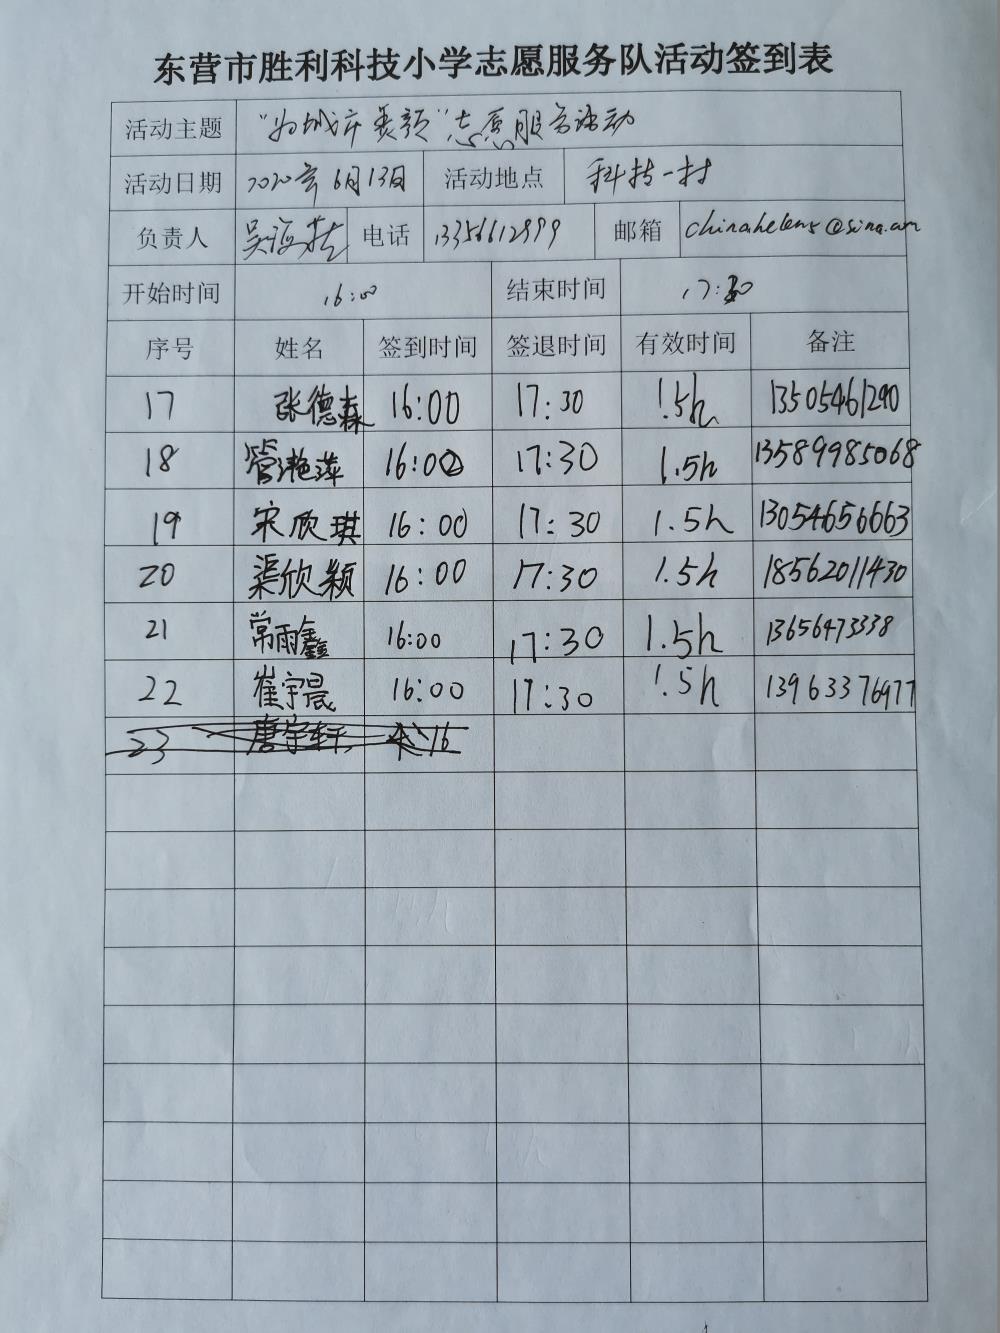 东营市胜利科技小学志愿服务队活动签到表
活动主题 “为城市美颜”志愿服务活动
活动日期 2020年6月13日 活动地点 科技一村
负责人 吴 电话 13356612999 邮箱
开始时间 16:00 结束时间 17:30
序号 姓名 签到时间 签退时间 有效时间 备注
17 张德森 16:00 17:30 1.5h 13505461290
18 管滟萍 16:00 17:30 1.5h 13589985068
19 宋欣琪 16:00 17:30 1.5h 13054656663
20 渠欣颖 16:00 17:30 1.5h 18562011430
21 常雨鑫 16:00 17:30 1.5h 13656473338
22 崔宇晨 16:00 17:30 1.5h 13963376977
23 唐宇轩 16